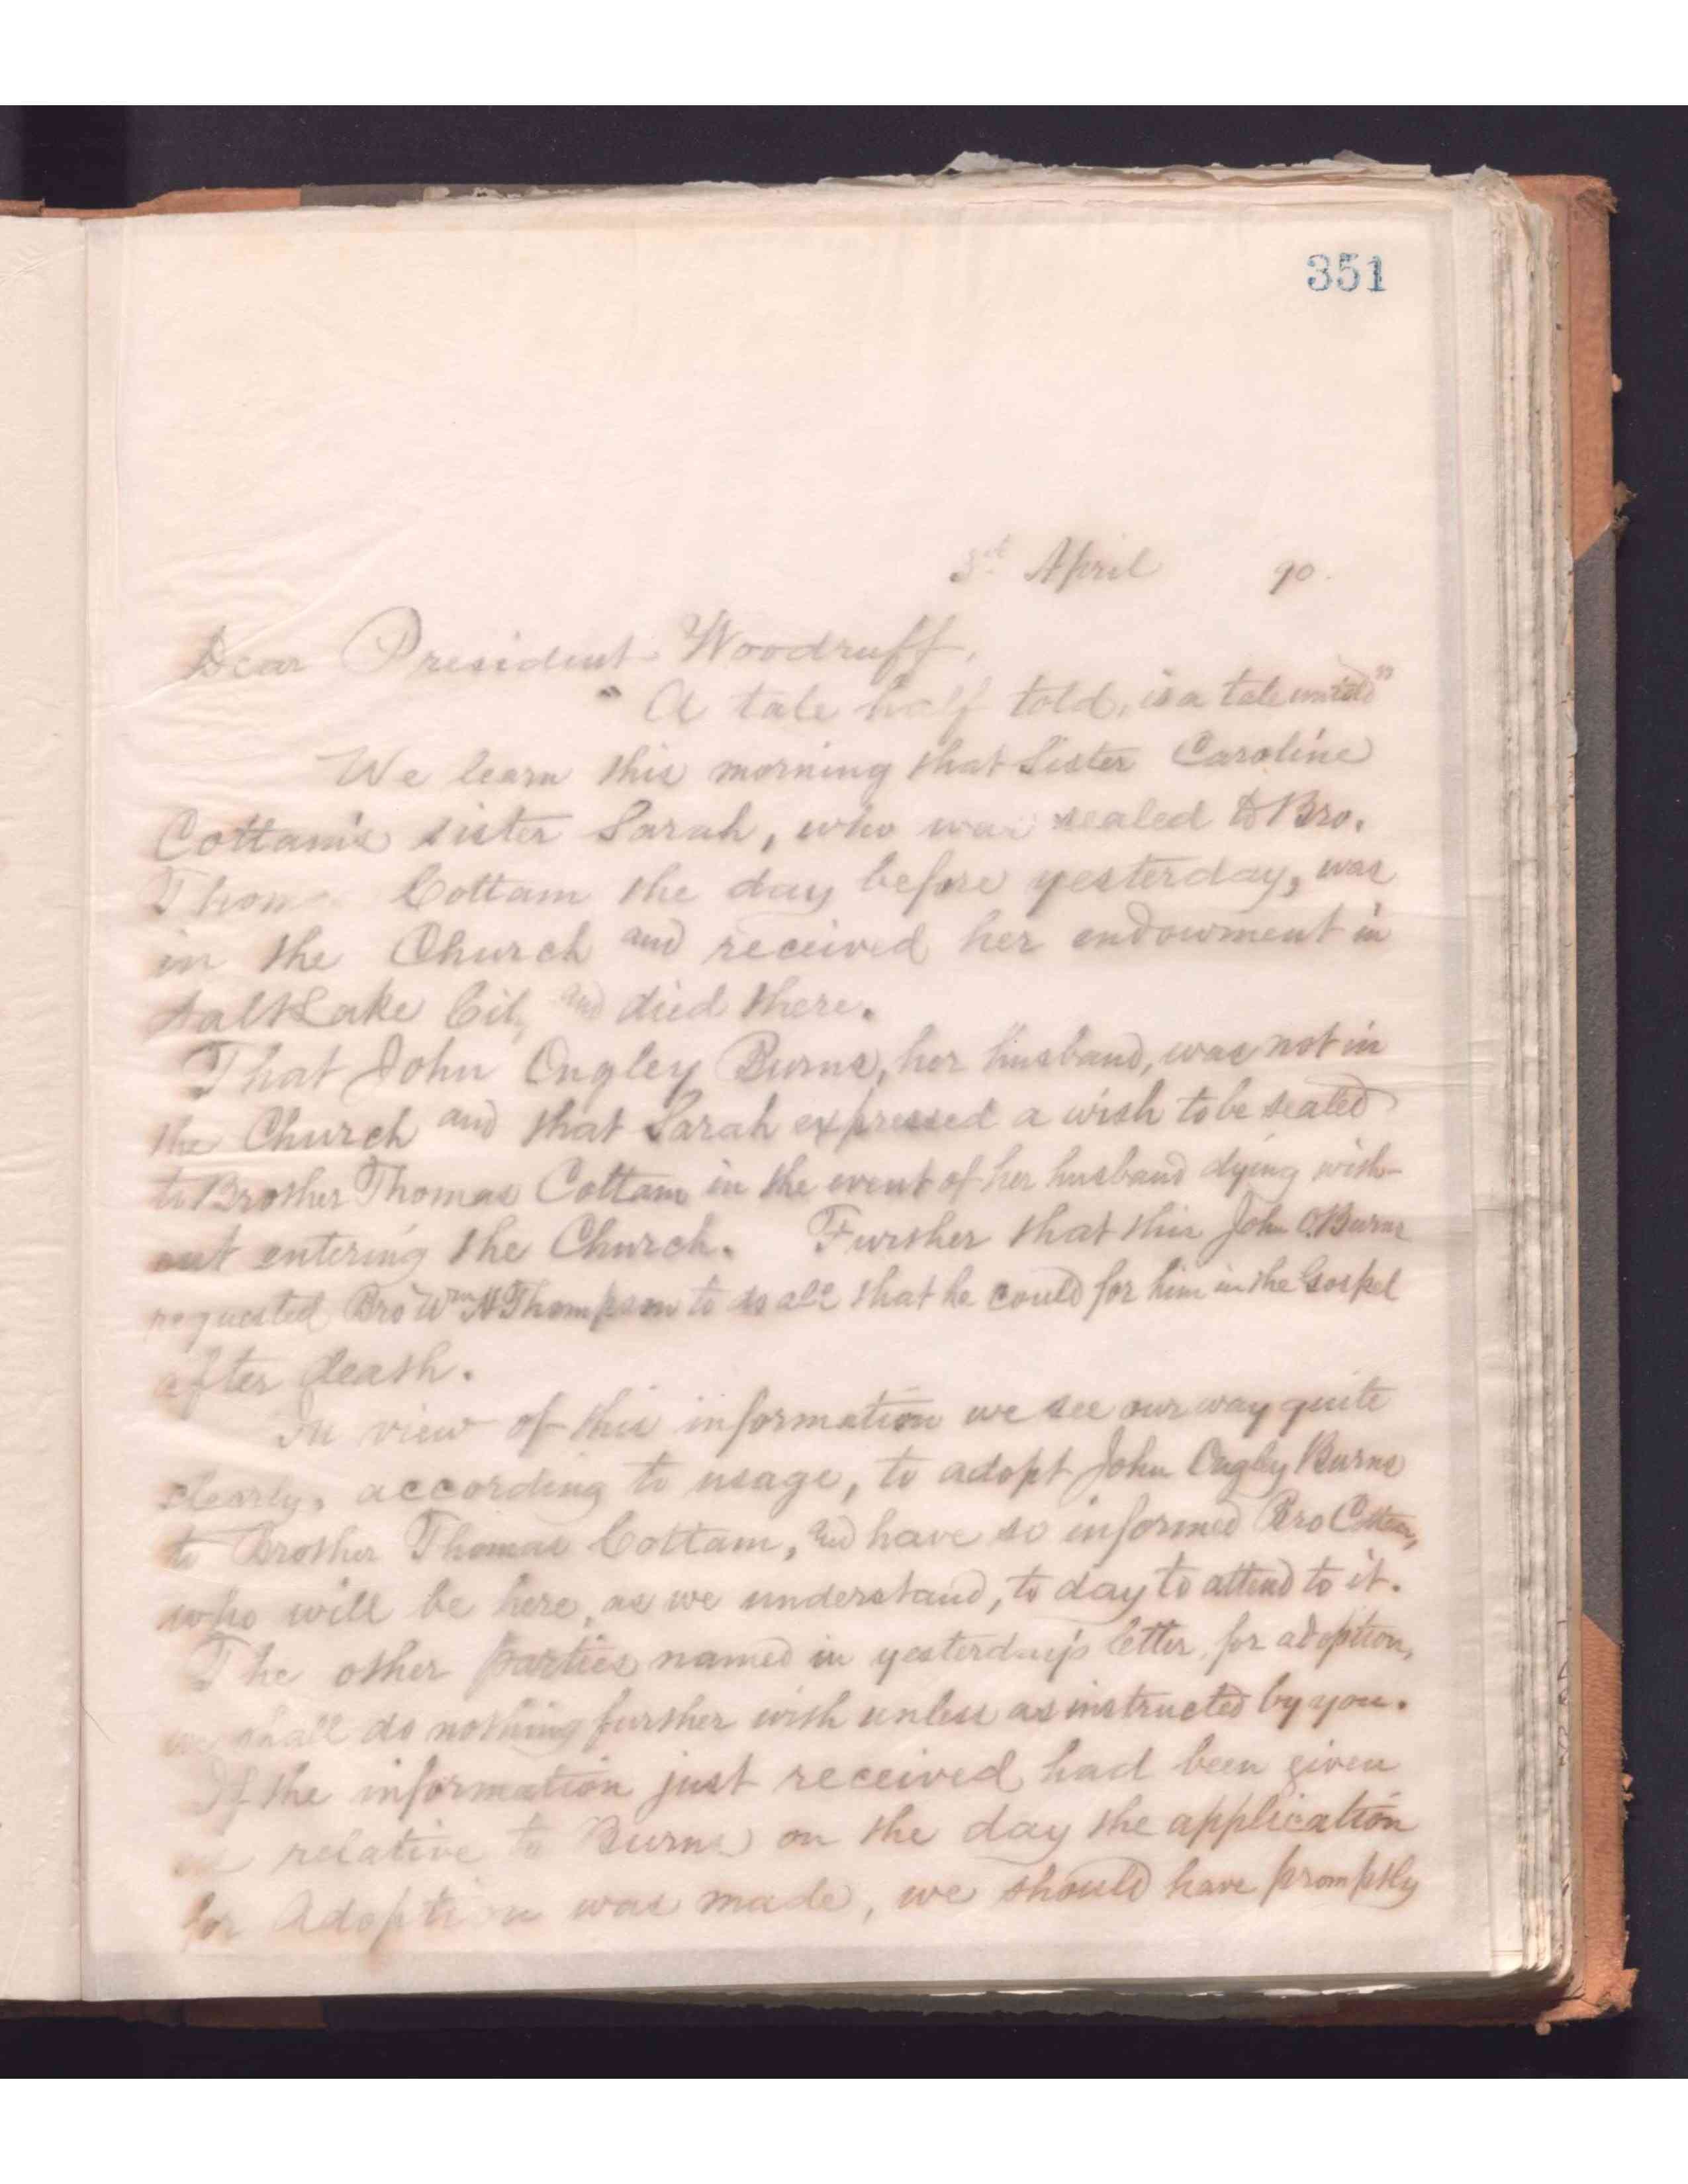 351
April 90.
Dear President Woodruff,
" A tale half told, is a tale untold"
We learn this morning that Sister Caroline
Cottam's sister Sarah, who was sealed to Bro.
Cottam the day before yesterday, was
in the Church and received her endowment in
Salt Lake City and died there.
That John Ongley Burns, her husband, was not in
the Church and that Sarah expressed a wish to be sealed
to Brother Thomas Cottam in the event of her husband dying with-
out entering the Church. Further that this John O. Burns
requested Bro Wm H Thompson to do all that he could for him in the Gospel
after death.
In view of this information we see our way quite
clearly, according to usage, to adopt John Ongley Burns
to Brother Thomas Cottam, and have so informed Bro Cottam,
who will be here, as we understand, to day to attend to it.
The other parties named in yesterday's letter, for adoption,
we shall do nothing further with unless as instructed by you.
If the information just received had been given
us relative to Burns on the day the application
for Adoption was made, we should have promptly